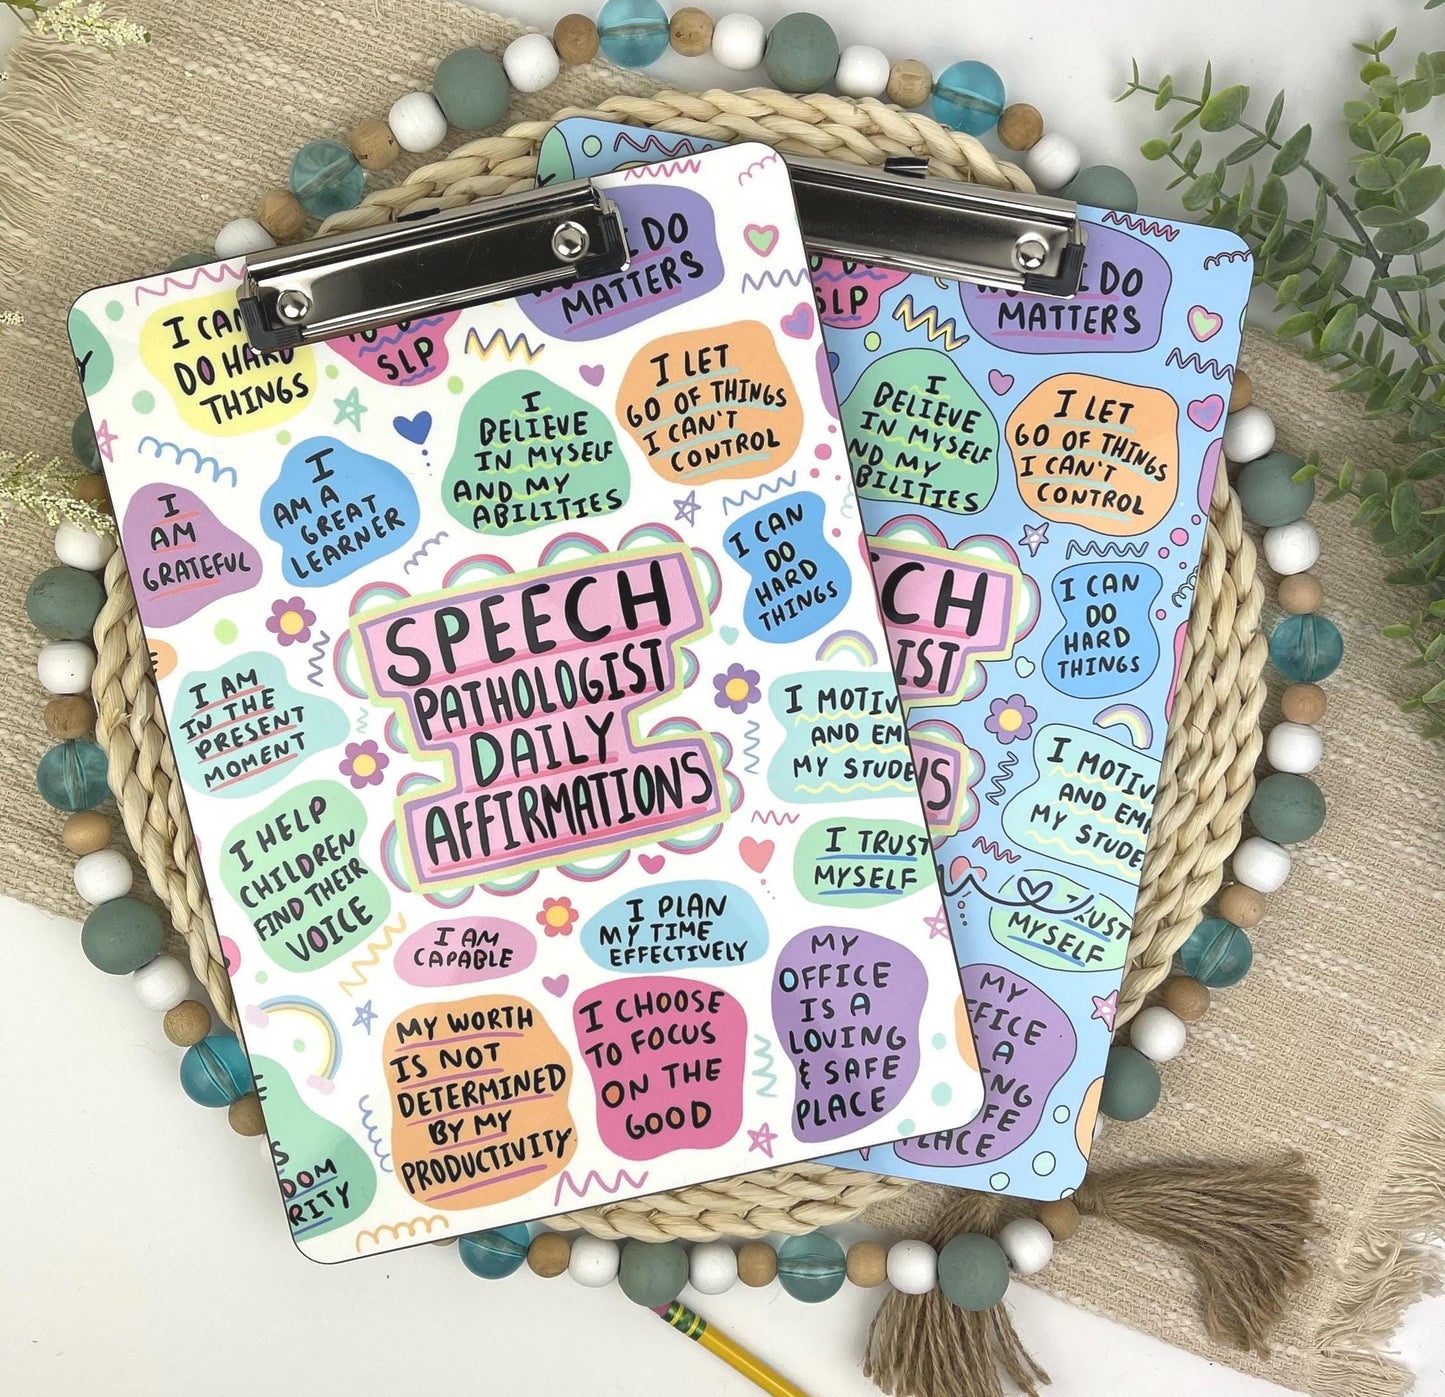 I CAN
DO HARD
THINGS
SLP
I DO
MATTERS
I
BELIEVE
IN MYSELF
AND MY
ABILITIES
I LET
GO OF THINGS
I CAN'T
CONTROL
I
AM
GRATEFUL
I
AM A
GREAT
LEARNER
I CAN
DO
HARD
THINGS
SPEECH
PATHOLOGIST
DAILY
AFFIRMATIONS
I AM
IN THE
PRESENT
MOMENT
I MOTIV
AND EM
MY STUDE
I HELP
CHILDREN
FIND THEIR
VOICE
I TRUST
MYSELF
I AM
CAPABLE
I PLAN
MY TIME
EFFECTIVELY
MY
OFFICE
IS A
LOVING
& SAFE
PLACE
MY WORTH
IS NOT
DETERMINED
BY MY
PRODUCTIVITY
I CHOOSE
TO FOCUS
ON THE
GOOD
DOM
RITY
SLP
I DO
MATTERS
I
BELIEVE
IN MYSELF
ND MY
BILITIES
I LET
GO OF THINGS
I CAN'T
CONTROL
I CAN
DO
HARD
THINGS
CH
IST
NS
I MOTIV
AND EM
MY STUDE
TRUST
MYSELF
MY
FFICE
A
NG
FE
LACE